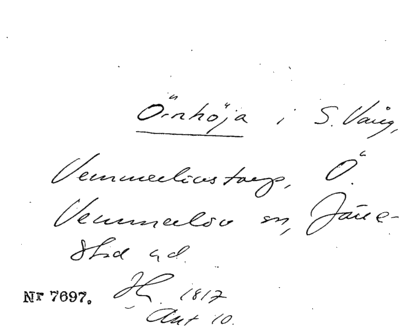 Örnhöja i S. Vång,
Vemmerlövstorp, Ö.
Vemmerlöv sn, Järre-
stad hd.
Nr 7697. 1817
Akt 10.